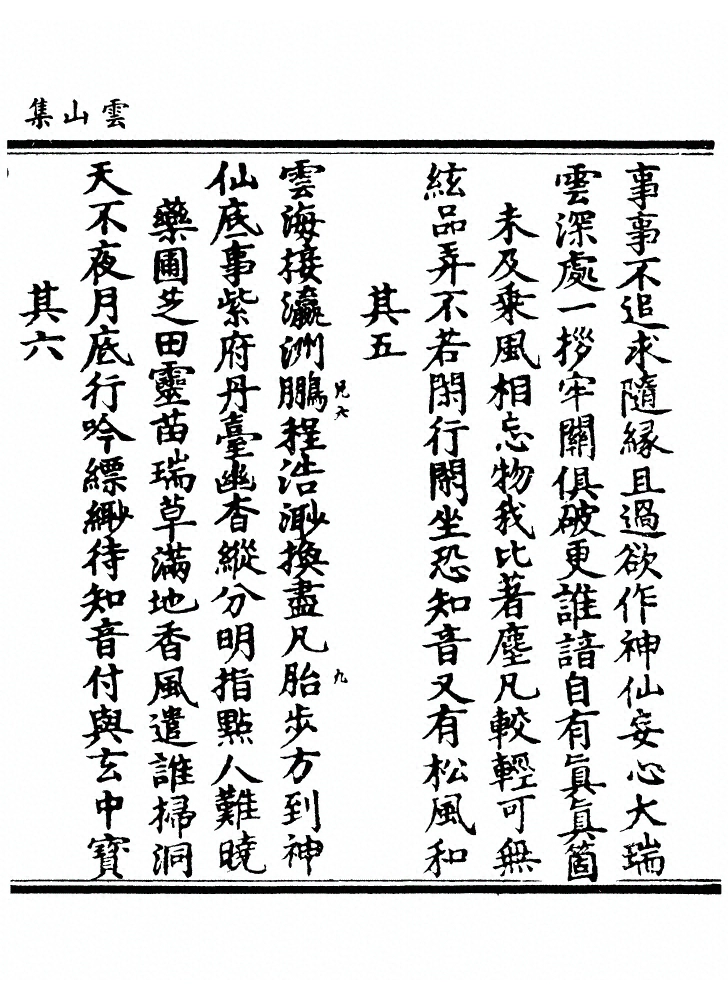 雲山集
事事不追求隨緣且過欲作神仙妄心大瑞
雲深處一拶牢關俱破更誰諳自有眞眞箇
未及乘風相忘物我比著塵凡較輕可無
絃品弄不若閑行閑坐恐知音又有松風和
其五
雲海接瀛洲鵬程浩渺換盡凡胎步方到神
仙底事紫府丹臺幽杳縱分明指點人難曉
藥圃芝田靈苗瑞草滿地香風遣誰掃洞
天不夜月底行吟縹緲待知音付與玄中寶
其六